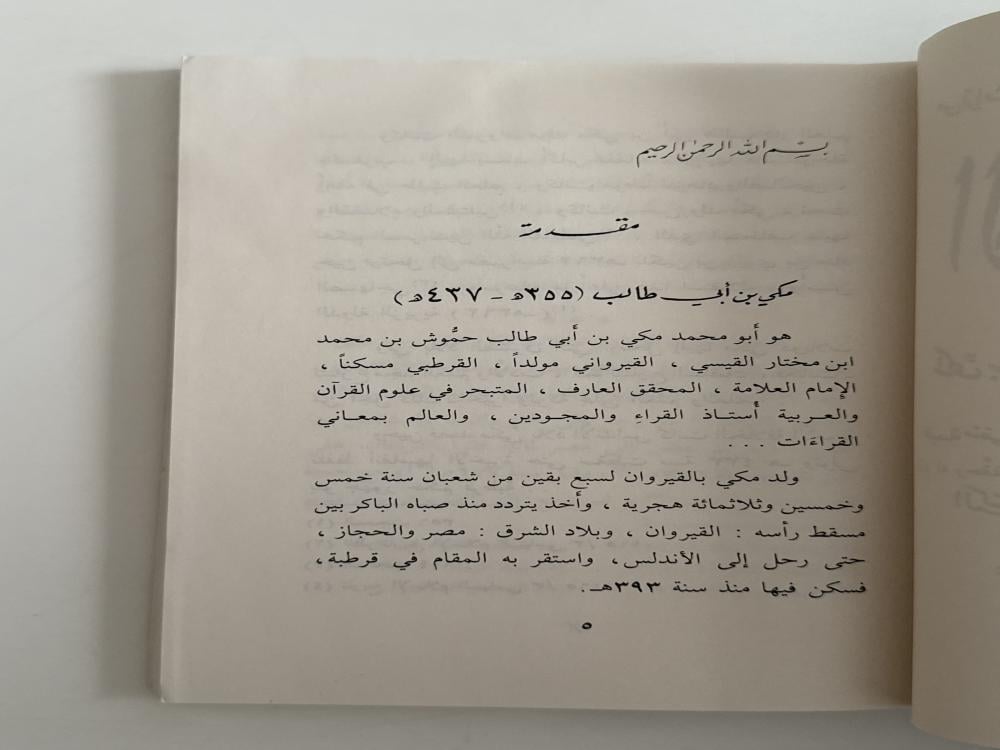 بسم الله الرحمن الرحيم
مقدمة
مكي بن أبي طالب (٣٥٥ه - ٤٣٧ه)
هو أبو محمد مكي بن أبي طالب حمُّوش بن محمد
ابن مختار القيسي ، القيرواني مولداً ، القرطبي مسكناً ،
الإمام العلامة ، المحقق العارف ، المتبحر في علوم القرآن
والعربية أستاذ القراءِ والمجودين ، والعالم بمعاني
القراءَات ...
ولد مكي بالقيروان لسبع بقين من شعبان سنة خمس
وخمسين وثلاثمائة هجرية ، وأخذ يتردد منذ صباه الباكر بين
مسقط رأسه : القيروان ، وبلاد الشرق : مصر والحجاز ،
حتى رحل إلى الأندلس، واستقر به المقام في قرطبة،
فسكن فيها منذ سنة ٣٩٣هـ.
٥